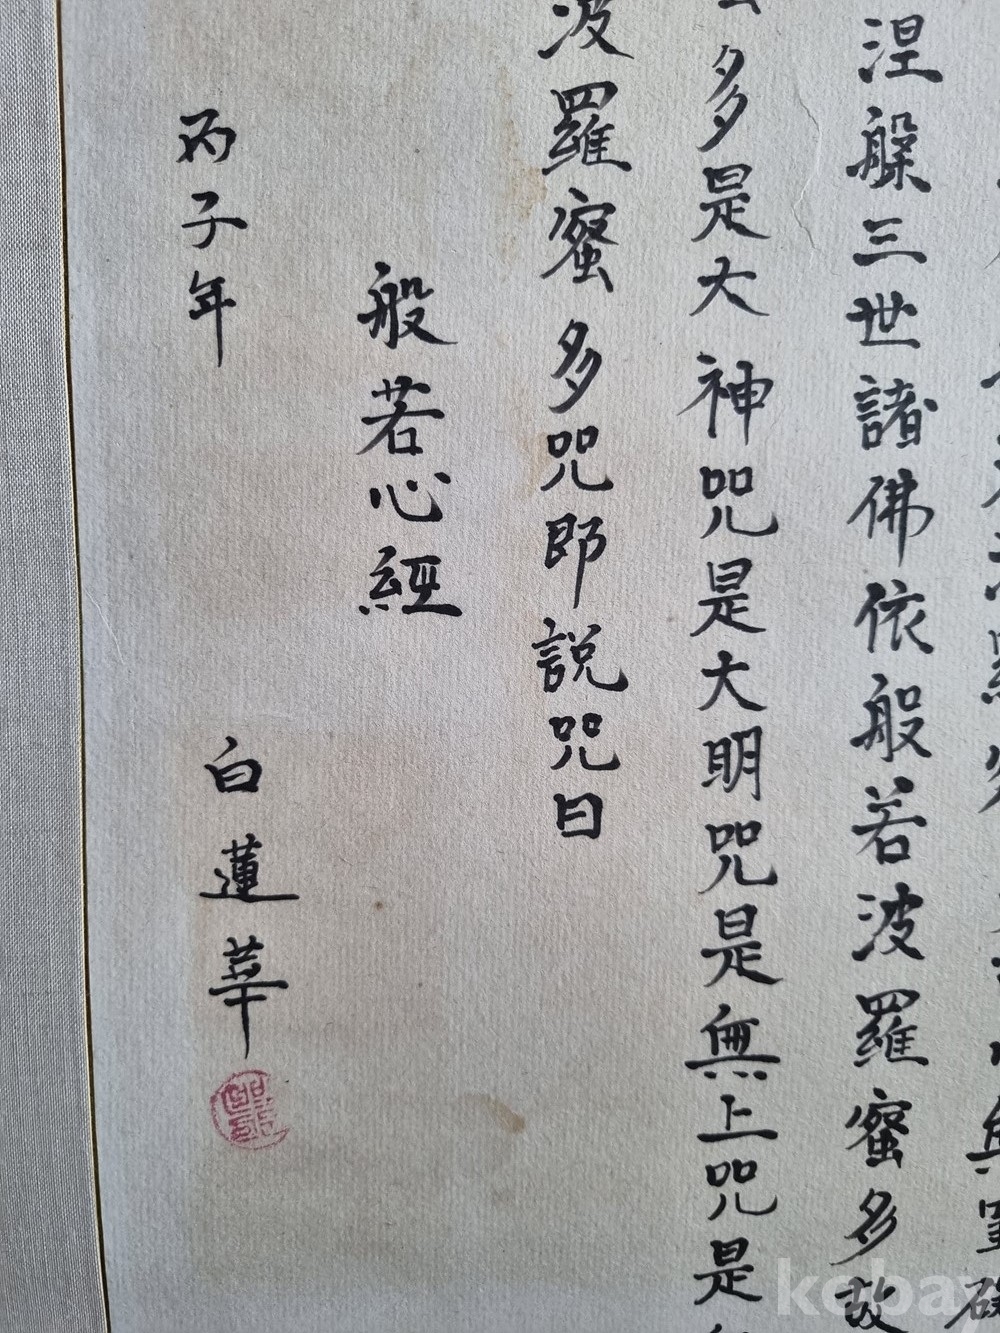 涅槃三世諸佛依般若波羅蜜多故
多是大神咒是大明咒是無上咒是
波羅蜜多咒即說咒曰
般若心經
丙子年 白蓮華
kobay